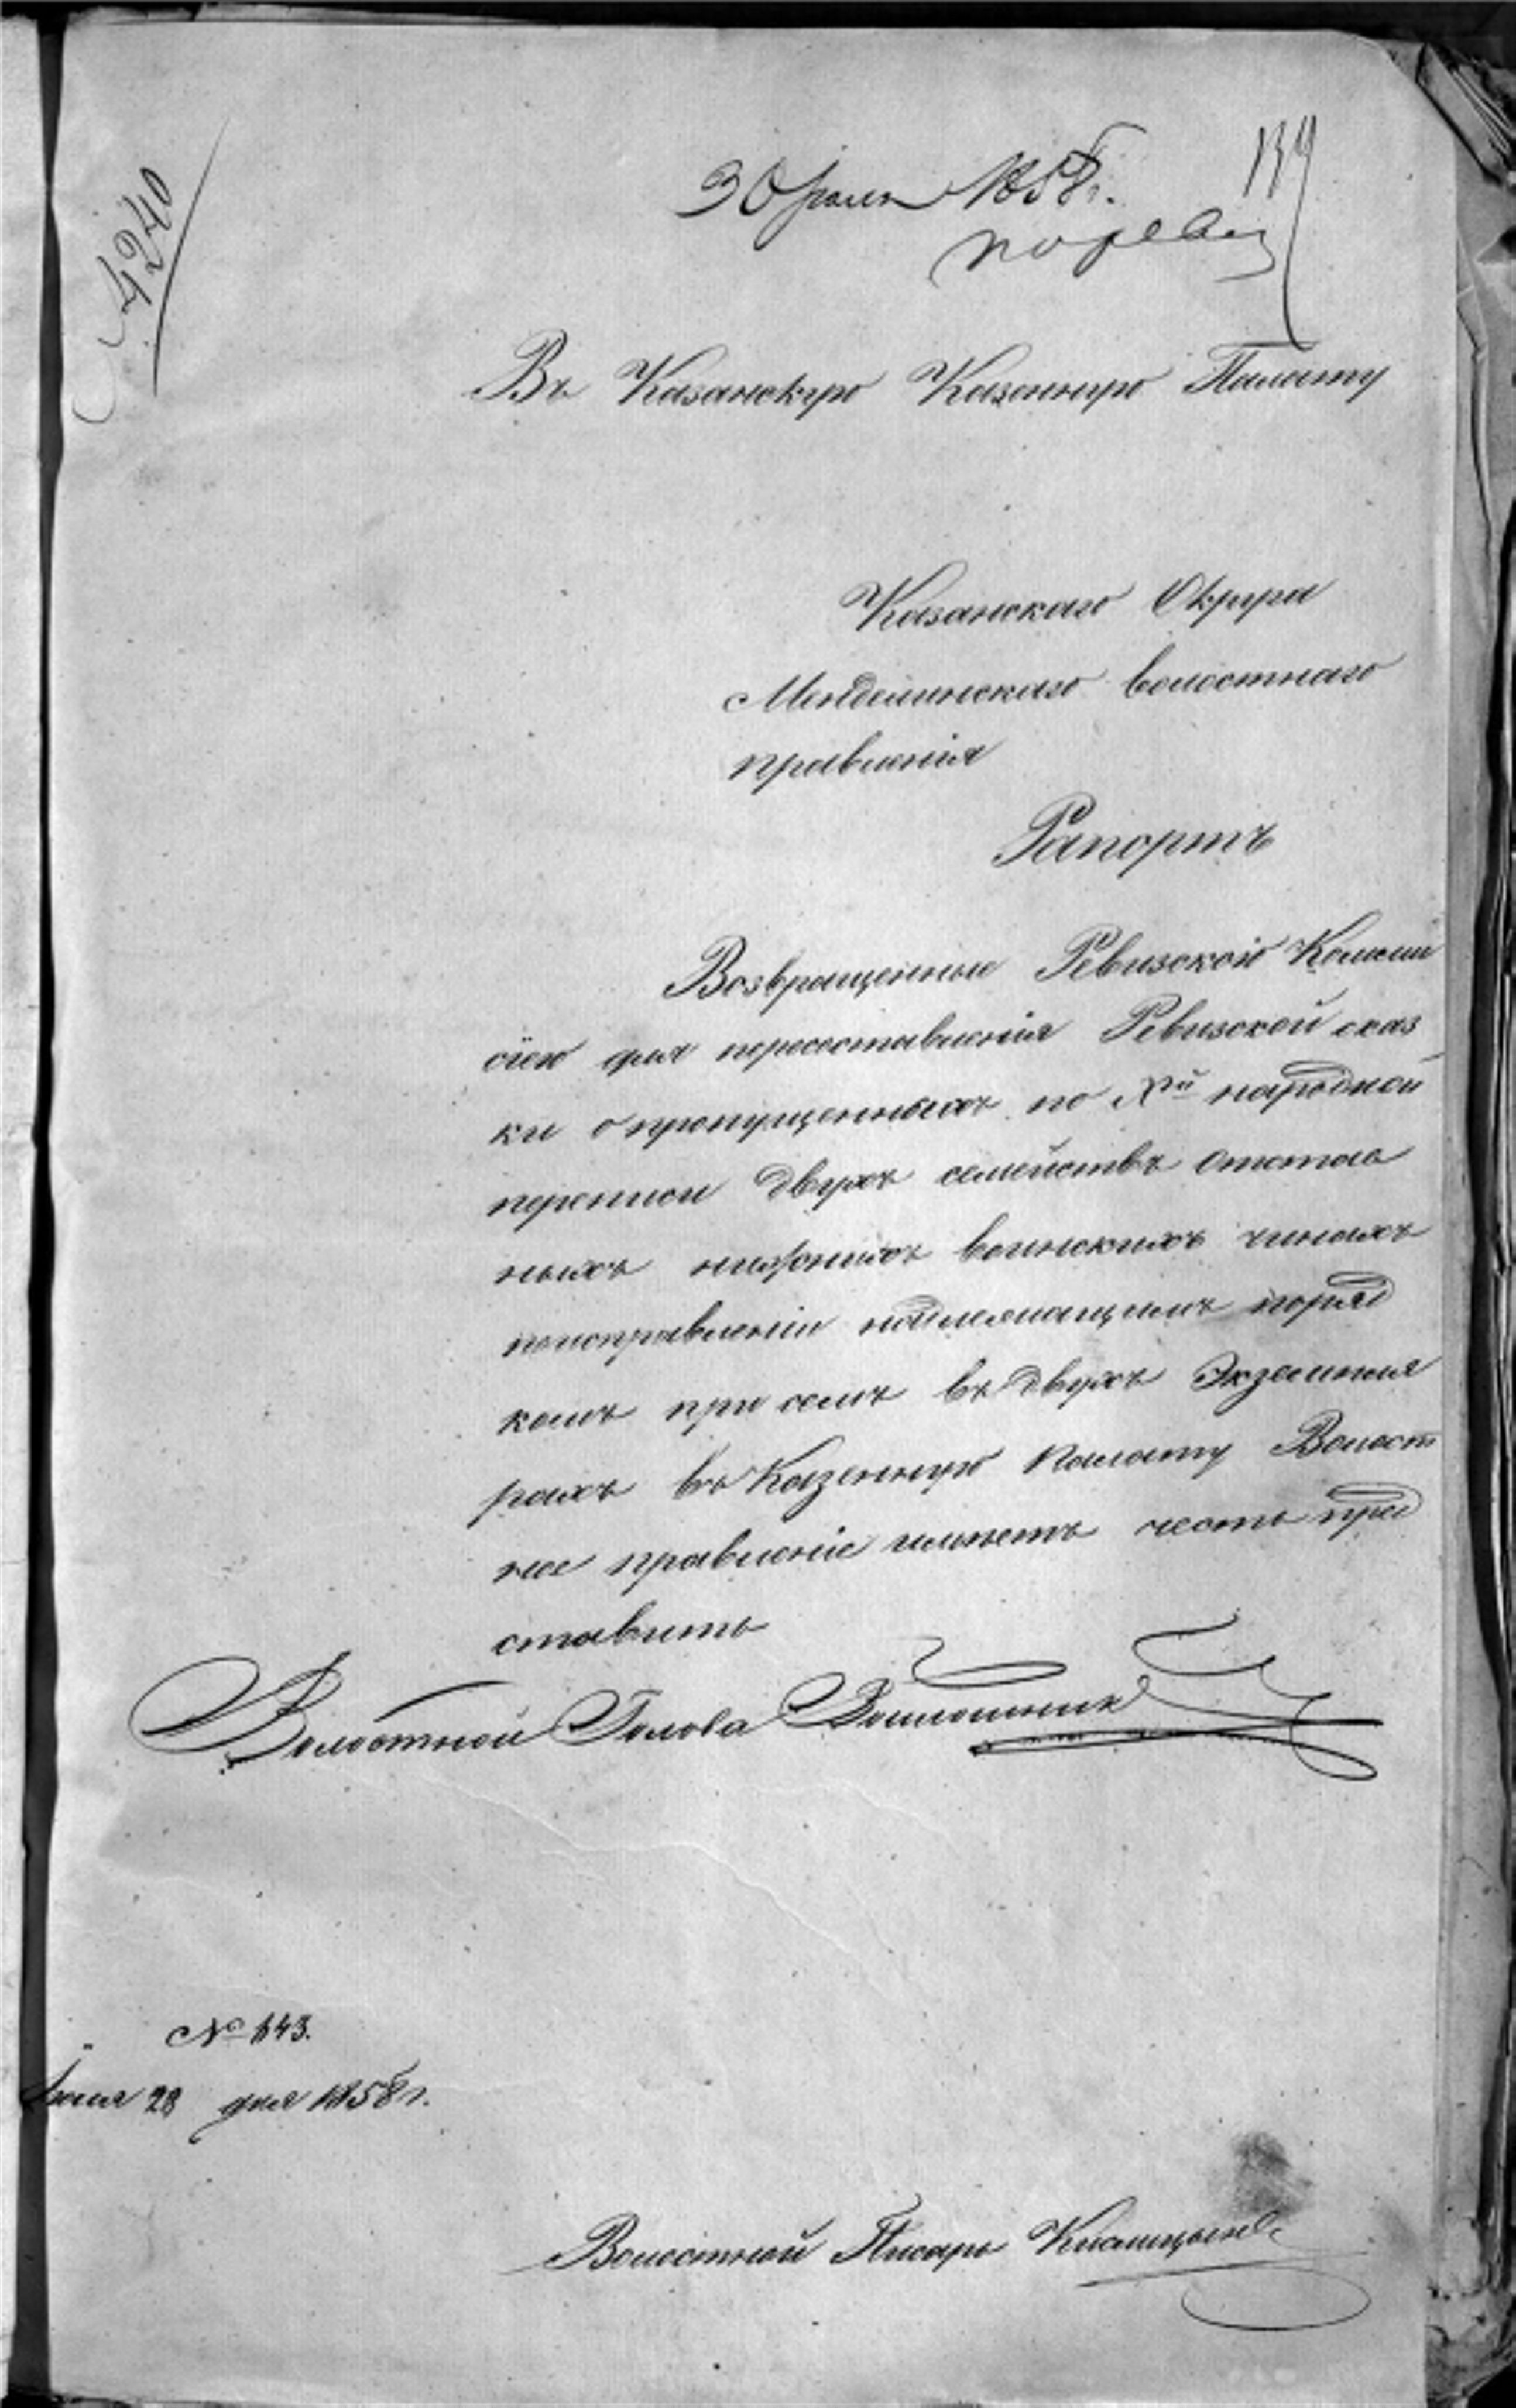 4240
30 июня 1858 г.
139
по рев
Въ Казанскую Казенную Палату
Казанскаго Округа
Менделинскаго волостнаго
правленія
Рапортъ
Возвращенныя Ревизской Комми
сіею для пересоставленія Ревизской сказ
ки о пропущенныхъ по Xй народной
переписи двухъ семействъ отстав
ныхъ нижнихъ воинскихъ чинахъ
поисправленіи надлежащимъ поряд
комъ при семъ въ двухъ Экземпля
рахъ въ Казенную Палату Волост
ное правленіе имѣетъ честь пред
ставить
Волостной Голова
№ 643.
Іюня 28 дня 1858 г.
Волостной Писарь